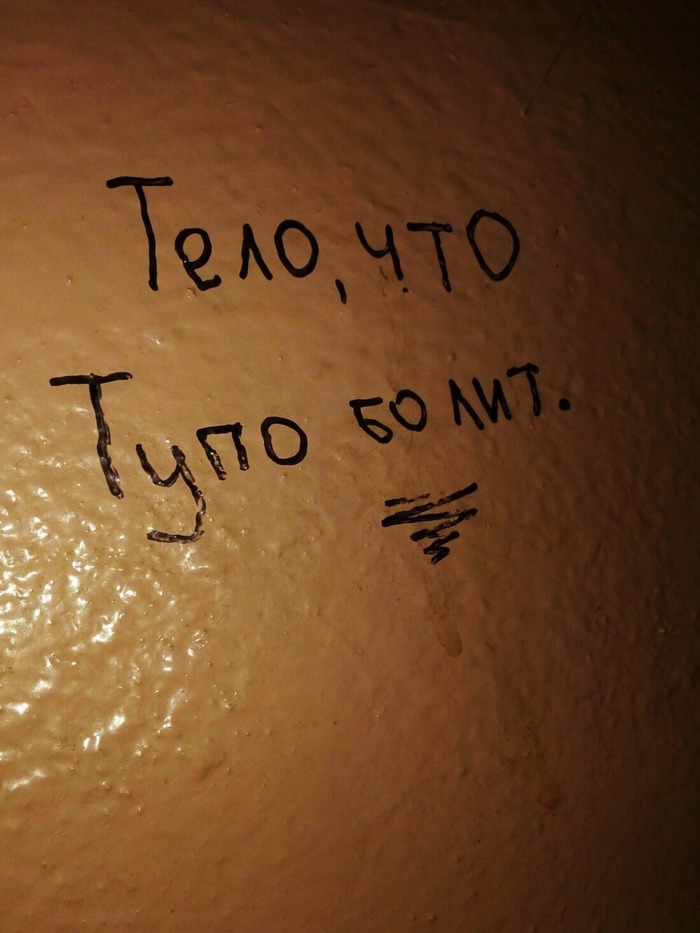 Тело, что
Тупо болит.